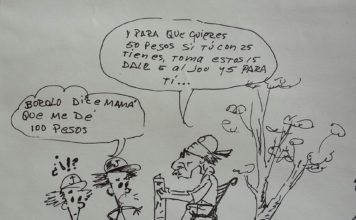 BOROLO DICE MAMÁ
QUE ME DÉ
100 PESOS
Y PARA QUE QUIERES
50 PESOS SI TÚ CON 25
TIENES, TOMA ESTOS 15
DALE 5 AL JOO Y 5 PARA
TÍ...
¿¡!?